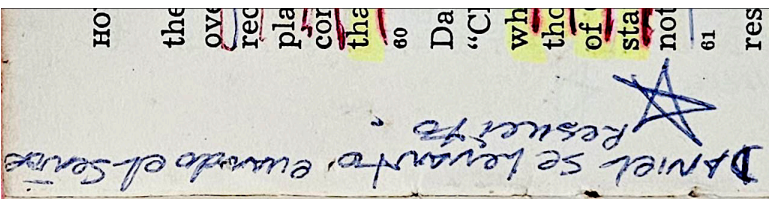 HO
the
ove
rec
pla
con
tha
60
Da
"Cl
wh
tho
of
sta
not
61
res
DANIEL se levantó cuando el Señor
Resucitó.